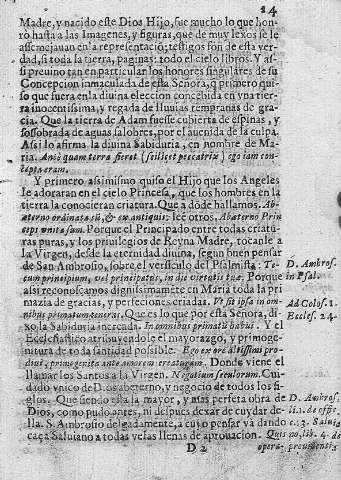 14
Madre, y nacido este Dios Hijo, fue mucho lo que hon-
rò hasta a las Imagenes, y figuras, que de muy lexos se le
assemejauan en la representaciõ; testigos son de esta ver-
dad, si toda la tierra, paginas: todo el cielo libros. Y as-
si preuino tan en particular los honores singulares de su
Concepcion inmaculada de esta Señora, q̃ primero qui-
so que fuera en la diuina eleccion concebida en vna tier-
ra inocentissima, y regada de lluuias tempranas de gra-
cia. Que la tierra de Adam fuesse cubierta de espinas, y
sossobrada de aguas salobres, por el auenida de la culpa.
Assi lo afirma la diuina Sabiduria, en nombre de Ma-
ria. Ante quam terra fieret (scilicet peccatrix) ego iam con-
cepta eram.
Y primero assimismo quiso el Hijo que los Angeles
le adoraran en el cielo Princesa, que los hombres en la
tierra la conocieran criatura. Que a dõde hallamos. Ab
æterno ordinata sũ, & ex antiquis: lee otros. Ab æterno Prin
cepi vnita sum. Porque el Principado entre todas criatu-
ras puras, y los priuilegios de Reyna Madre, tocanle a
la Virgen, desde la eternidad diuina, segun buen pensar
de San Ambrosio, sobre el versiculo del Psalmista: Te-
cum principium, vel principatus, in die virtutis tuæ; Porque
assi reconoscamos dignissimamente en Maria toda la pri
mazia de gracias, y perfeciones criadas. Vt sit ipsa in om-
nibus primatum tenens. Que es lo que por esta Señora, di-
xo la Sabiduria increada. In omnibus primatũ habui. Y el
Ecclesiastico atribuyendole el mayorazgo, y primoge-
nitura de toda santidad possible. Ego ex ore altissimi pro
diui, primogenita ante omnem creaturam. Donde viene el
llamar los Santos a la Virgen. Negotium seculorum. Cui-
dado vnico de Dios abeterno, y negocio de todos los si-
glos. Que siendo esta la mayor, y mas perfeta obra de
Dios, como pudo antes, ni despues dexar de cuydar de-
lla. S. Ambrosio delgadamente, a cuyo pensar va dando
caça Saluiano a todas velas llenas de aprouacion. Quis
D 2
D. Ambros.
in Psal.
Ad Colos. 1.
Eccles. 24.
D. Ambros.
li. 1. de offic.
c. 13. Saluia
no, lib. 4. de
prouidenti